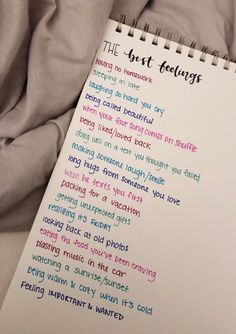 THE best feelings
having no homework
sleeping in late
laughing so hard you cry
being called beautiful
when your fave song comes on shuffle
being liked/loved back
doing well on a test you thought you failed
making someone laugh/smile
long hugs from someone you love
when he texts you first
packing for a vacation
getting unexpected gifts
realizing it's FRIDAY
looking back at old photos
eating the food you've been craving
blasting music in the car
watching a sunrise/sunset
being warm & cozy when it's cold
Feeling IMPORTANT & WANTED